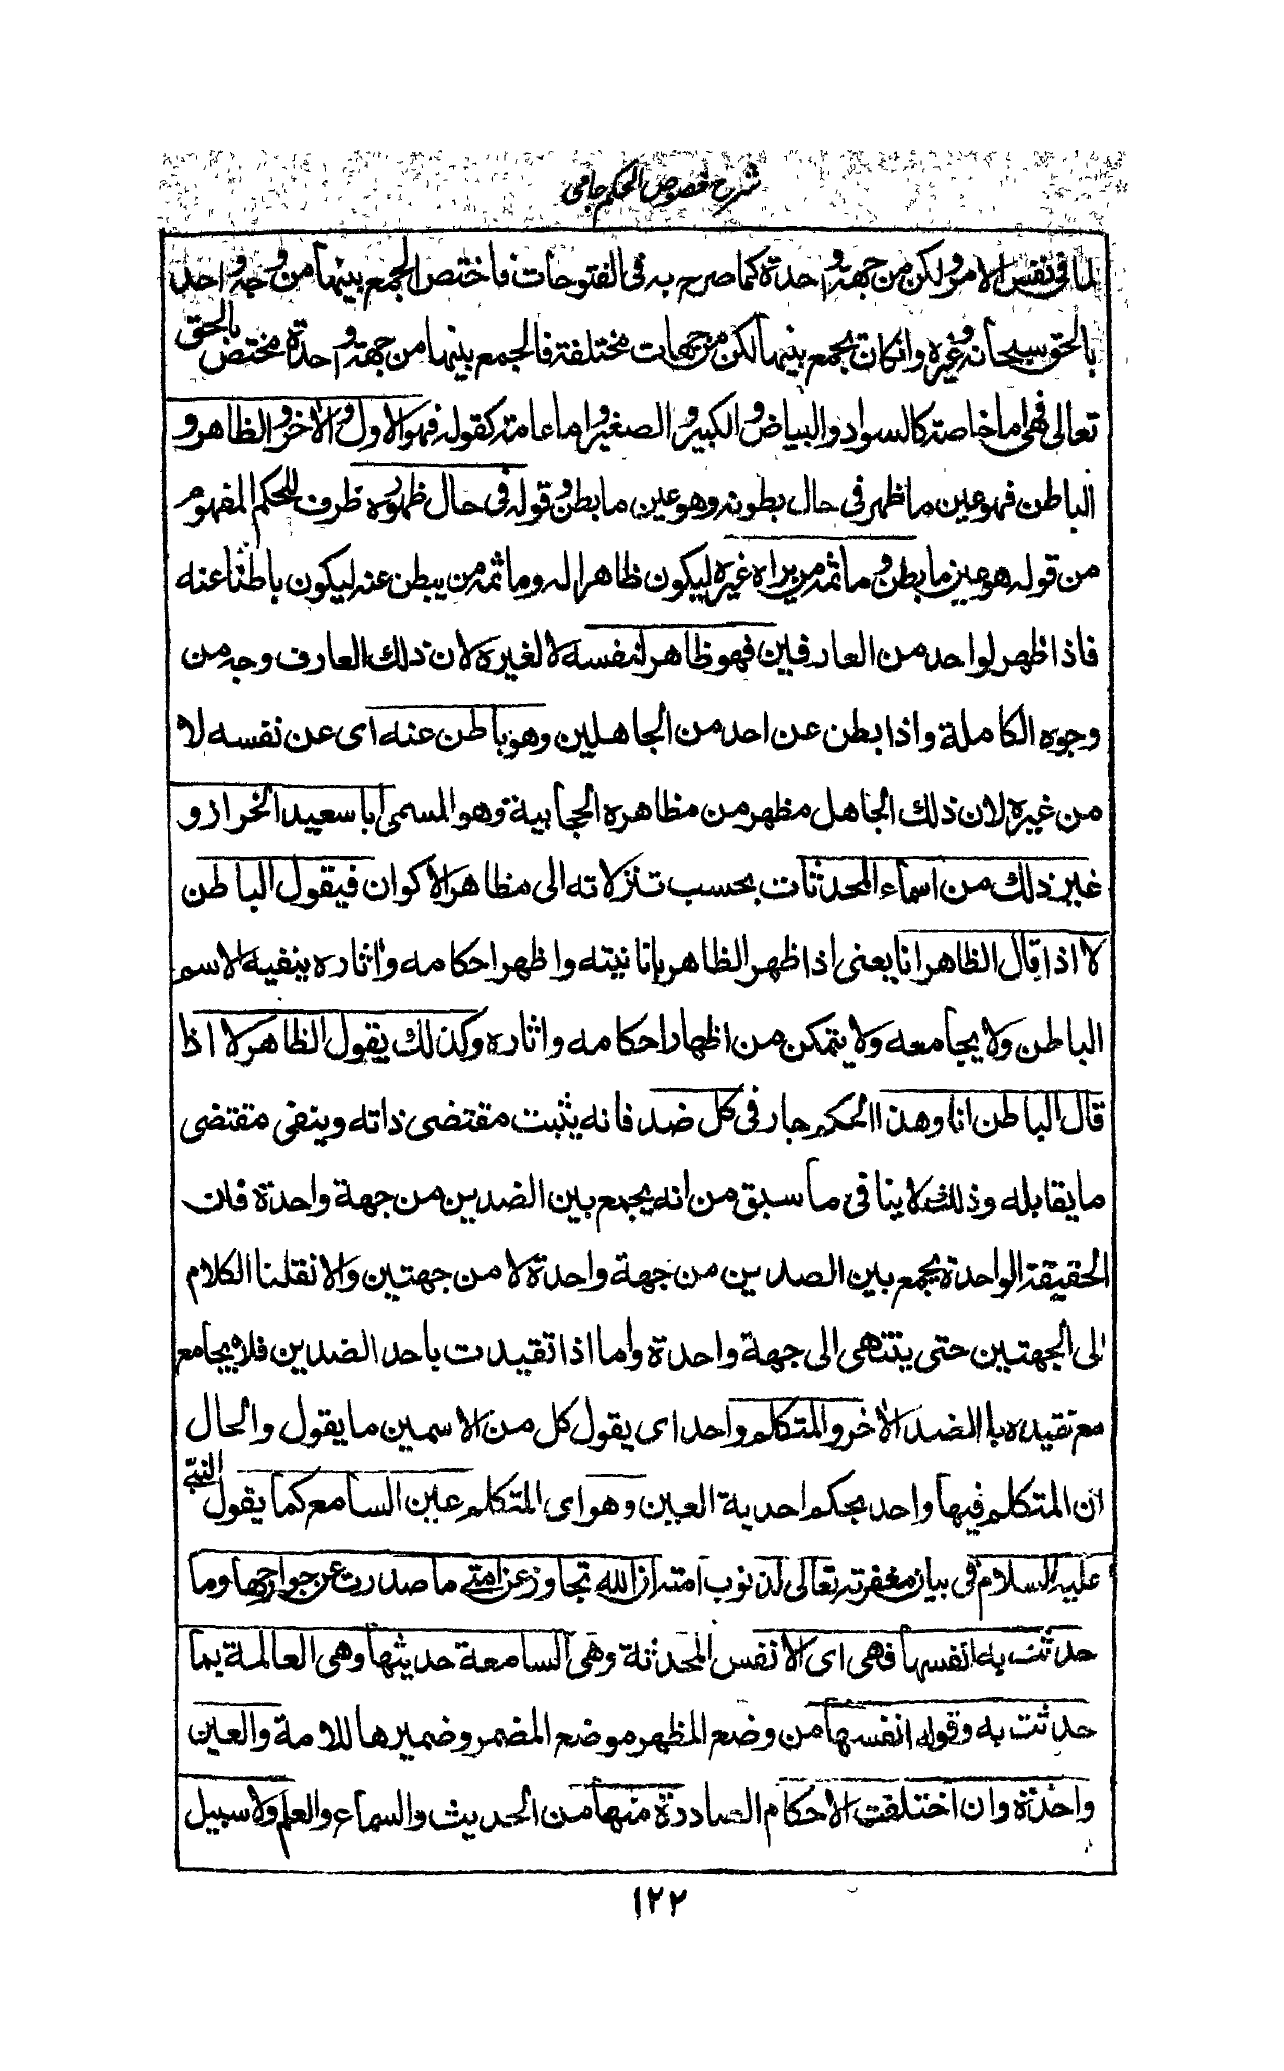 شرح فصوص الحكم جامى
لما فى نفس الامر ولكن من جهة واحدة كما صرح به فى الفتوحات فاختص الجمع بينهما من وجه واحد
بالحق سبحانه وغيره وان كان يجمع بينهما لكن من جهات مختلفة فالجمع بينهما من جهة واحدة مختص بالحق
تعالى فهى اما خاصة كالسواد والبياض والكبير والصغير واما عامة كقوله فهو الاول والاخر والظاهر و
الباطن فهو عين ما ظهر فى حال بطونه وهو عين ما بطن وقوله فى حال ظهوره ظرف للحكم المفهوم
من قوله هو عين ما بطن وما ثمه من يراه غيره ليكون ظاهرا له وما ثمه من يبطن عنه ليكون باطنا عنه
فاذا ظهر لواحد من العارفين فهو ظاهر لنفسه لا لغيره لان ذلك العارف وجه من
وجوه الكاملة واذا بطن عن احد من الجاهلين وهو باطن عنه اى عن نفسه لا
من غيره لان ذلك الجاهل مظهر من مظاهره الحجابية وهو المسمى ابا سعيد الخراز و
غير ذلك من اسماء المحدثات بحسب تنزلاته الى مظاهر الاكوان فيقول الباطن
لا اذا قال الظاهر انا يعنى اذا ظهر الظاهر بانانيته واظهر احكامه واثاره ينفيه الاسم
الباطن ولا يجامعه ولا يتمكن من اظهار احكامه واثاره وكذلك يقول الظاهر لا اذا
قال الباطن انا وهذا الحكم جار فى كل ضد فانه يثبت مقتضى ذاته وينفى مقتضى
ما يقابله وذلك لا ينافى ما سبق من انه يجمع بين الضدين من جهة واحدة فلت
الحقيقة الواحدة يجمع بين الضدين من جهة واحدة لا من جهتين والا نقلنا الكلام
الى الجهتين حتى ينتهى الى جهة واحدة واما اذا تقيدت باحد الضدين فلا يجامع
مع تقيده با الضد الاخر والمتكلم واحد اى يقول كل من الاسمين ما يقول والحال
ان المتكلم فيهما واحد بحكم احدية العين وهو اى المتكلم عين السامع كما يقول النبى
عليه السلام فى بيان مغفرته تعالى لذنوب امته ان الله تجاوز عن امتى ما صدرت عن جوارحها وما
حدثت به انفسها فهى اى الانفس المحدثة وهى السامعة حديثها وهى العالمة بما
حدثت به وقوله انفسها من وضع المظهر موضع المضمر وضميرها للامة والعين
واحدة وان اختلفت الاحكام الصادرة منها من الحديث والسماع والعلم ولا سبيل
١٢٢